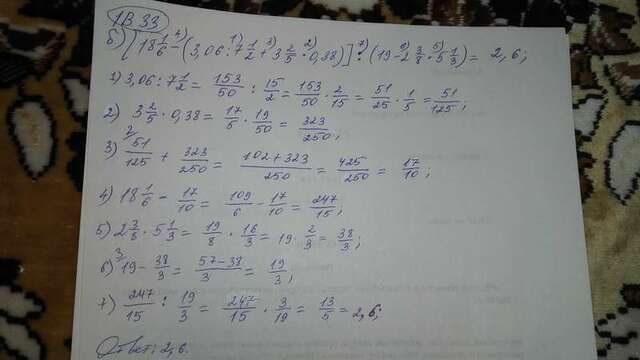 1В 33
б) [18 1/6 - (3,06 : 7 1/2 + 3 2/5 · 0,38)] : (19 - 2 3/8 · 5 1/3) = 2,6;
1) 3,06 : 7 1/2 = 153/50 : 15/2 = 153/50 · 2/15 = 51/25 · 1/5 = 51/125;
2) 3 2/5 · 0,38 = 17/5 · 19/50 = 323/250;
3) 51/125 + 323/250 = 102+323/250 = 425/250 = 17/10;
4) 18 1/6 - 17/10 = 109/6 - 17/10 = 247/15;
5) 2 3/8 · 5 1/3 = 19/8 · 16/3 = 19 · 2/3 = 38/3;
6) 19 - 38/3 = 57-38/3 = 19/3;
7) 247/15 : 19/3 = 247/15 · 3/19 = 13/5 = 2,6;
Ответ: 2,6.